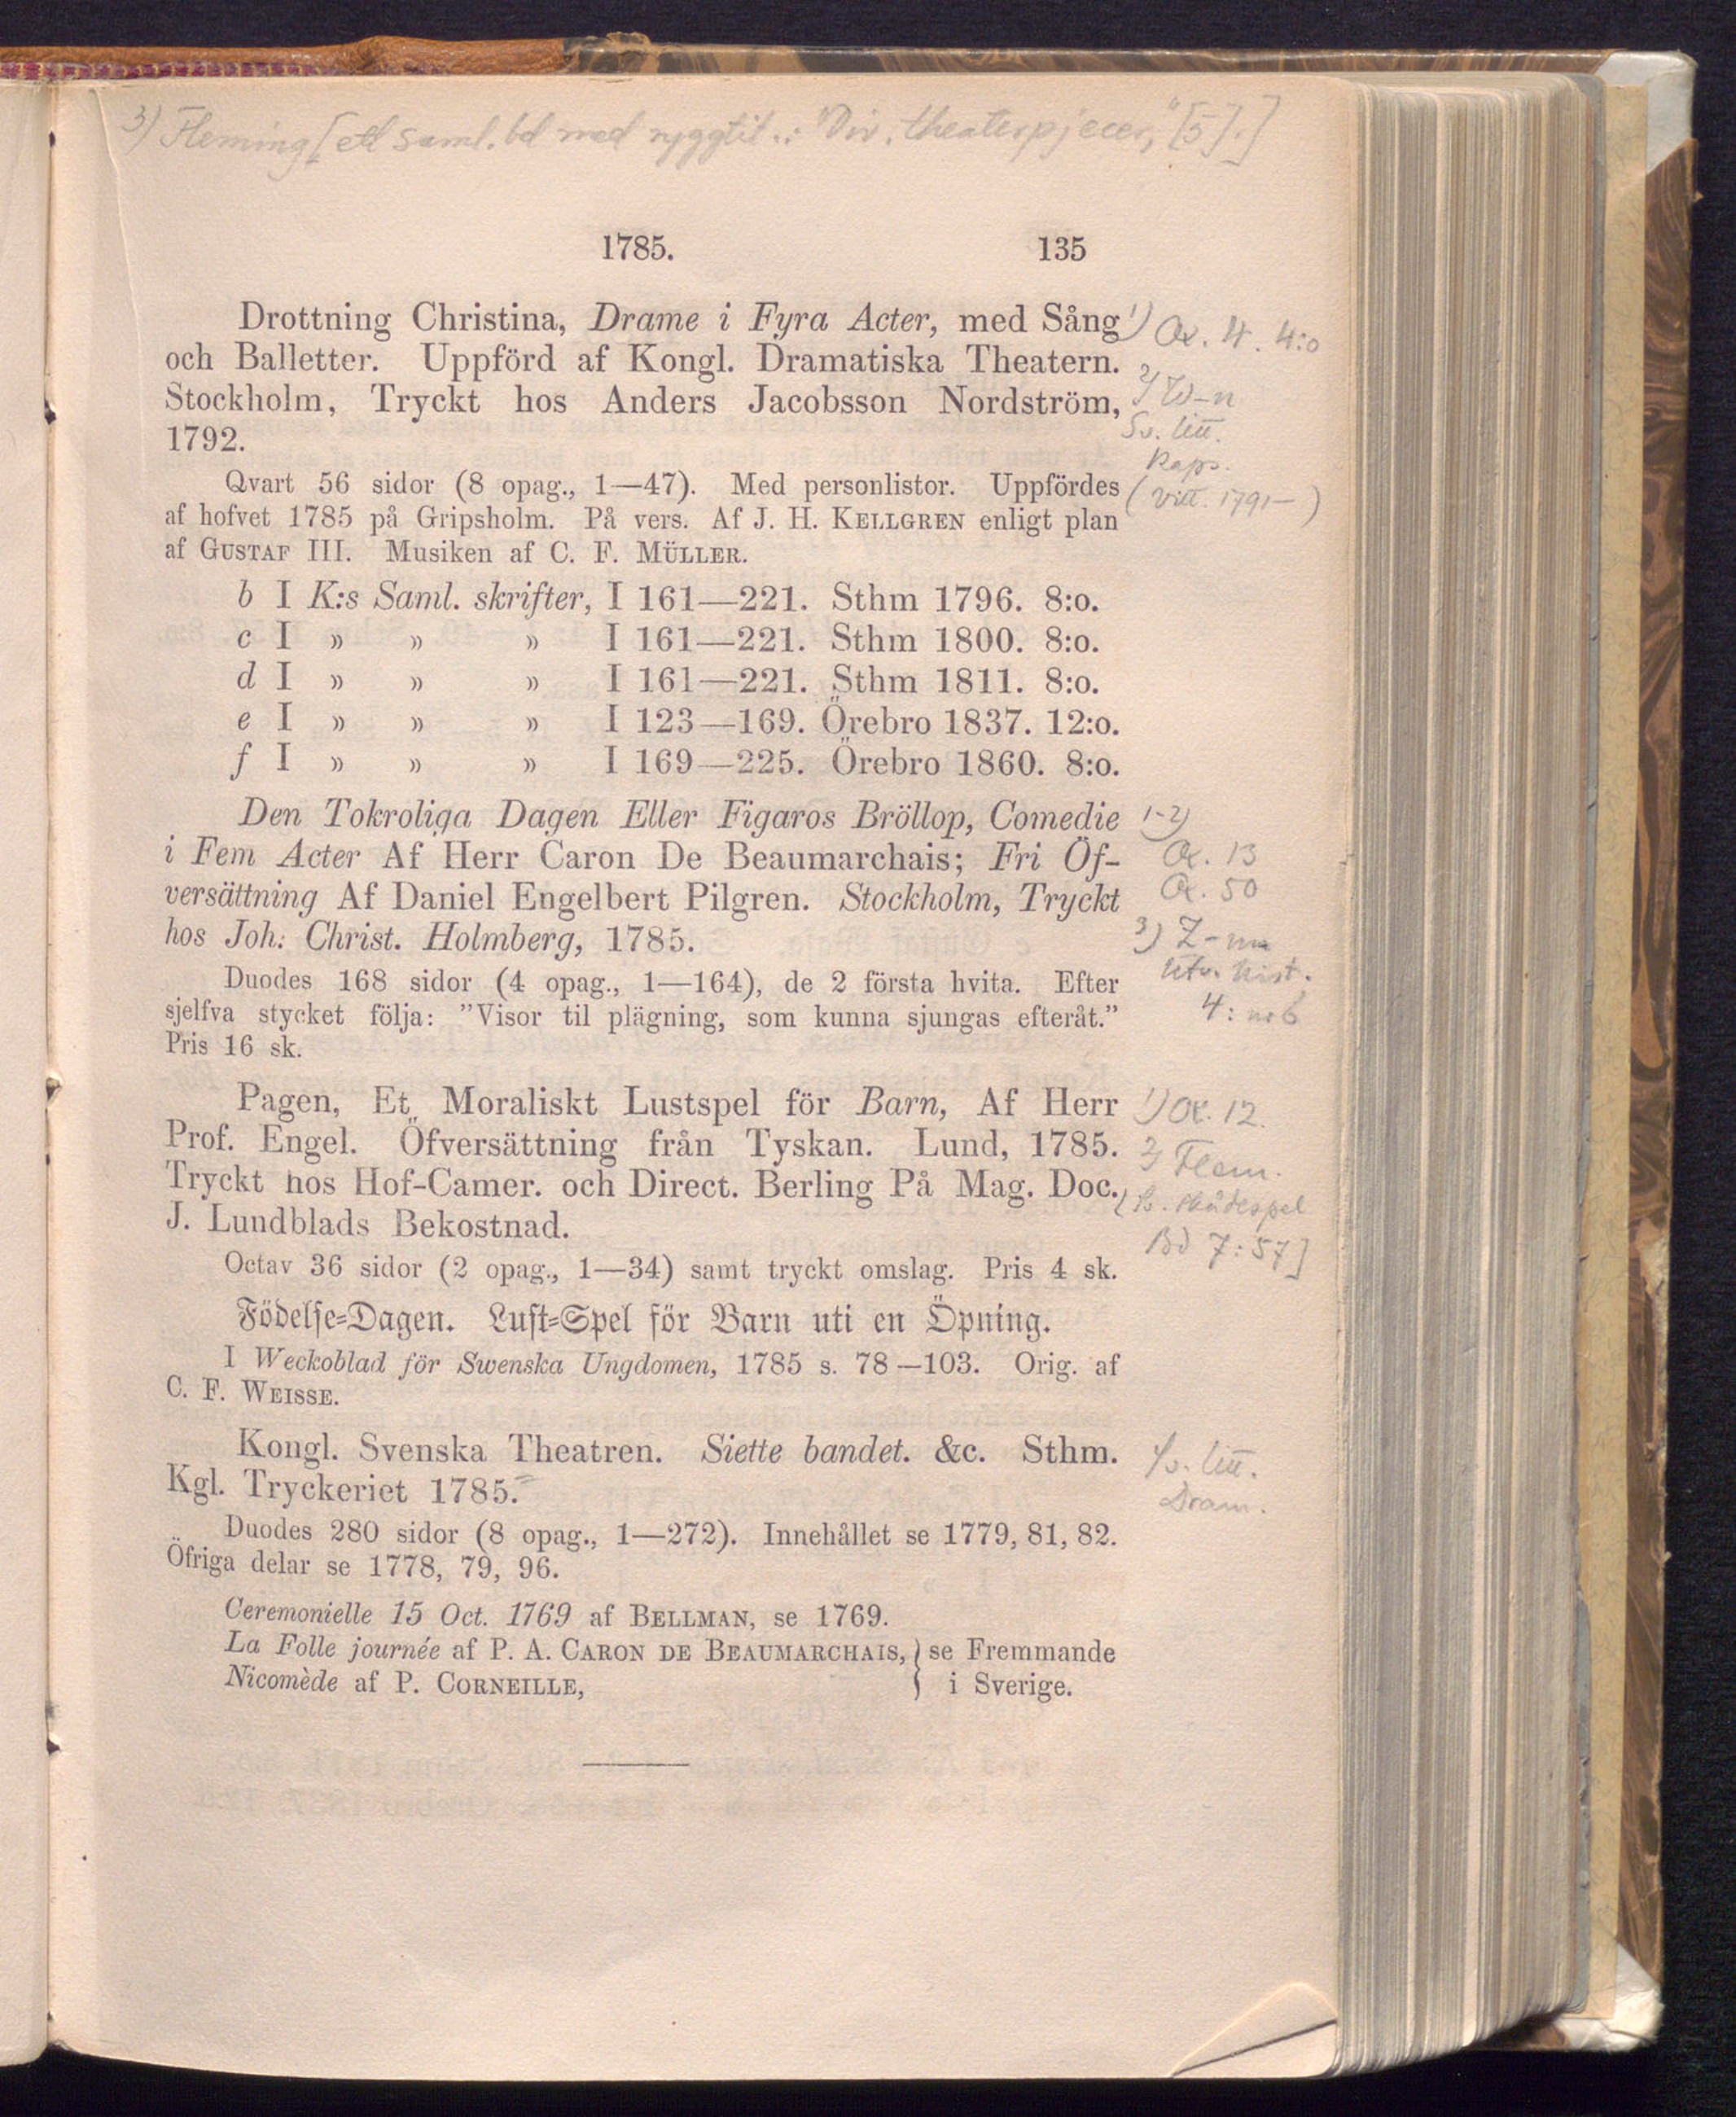 3) Fleming [ett saml. bd med ryggtit.: "Div. theaterpjecer," [5].]
1785. 135
Drottning Christina, Drame i Fyra Acter, med Sång
och Balletter. Uppförd af Kongl. Dramatiska Theatern.
Stockholm, Tryckt hos Anders Jacobsson Nordström,
1792.
1) Ox. 4. 4:o
2) W-n
Sv. litt.
Kaps.
(Vitt. 1791– )
Qvart 56 sidor (8 opag., 1—47). Med personlistor. Uppfördes
af hofvet 1785 på Gripsholm. På vers. Af J. H. KELLGREN enligt plan
af GUSTAF III. Musiken af C. F. MÜLLER.
b I K:s Saml. skrifter, I 161—221. Sthm 1796. 8:o.
c I » » » I 161—221. Sthm 1800. 8:o.
d I » » » I 161—221. Sthm 1811. 8:o.
e I » » » I 123—169. Örebro 1837. 12:o.
f I » » » I 169—225. Örebro 1860. 8:o.
Den Tokroliga Dagen Eller Figaros Bröllop, Comedie
i Fem Acter Af Herr Caron De Beaumarchais; Fri Öf-
versättning Af Daniel Engelbert Pilgren. Stockholm, Tryckt
hos Joh: Christ. Holmberg, 1785.
1-2)
Ox. 13
Ox. 50
3) Z-
hist.
4:
Duodes 168 sidor (4 opag., 1—164), de 2 första hvita. Efter
sjelfva stycket följa: ”Visor til plägning, som kunna sjungas efteråt.”
Pris 16 sk.
Pagen, Et Moraliskt Lustspel för Barn, Af Herr
Prof. Engel. Öfversättning från Tyskan. Lund, 1785.
Tryckt hos Hof-Camer. och Direct. Berling På Mag. Doc.
J. Lundblads Bekostnad.
1) Ox. 12.
2) Flem.
[Sv. skådespel
Bd 7:57]
Octav 36 sidor (2 opag., 1—34) samt tryckt omslag. Pris 4 sk.
Födelse=Dagen. Lust=Spel för Barn uti en Öpning.
I Weckoblad för Swenska Ungdomen, 1785 s. 78—103. Orig. af
C. F. WEISSE.
Kongl. Svenska Theatren. Siette bandet. &c. Sthm.
Kgl. Tryckeriet 1785.
Sv. litt.
Dram.
Duodes 280 sidor (8 opag., 1—272). Innehållet se 1779, 81, 82.
Öfriga delar se 1778, 79, 96.
Ceremonielle 15 Oct. 1769 af BELLMAN, se 1769.
La Folle journée af P. A. CARON DE BEAUMARCHAIS, } se Fremmande
Nicomède af P. CORNEILLE, } i Sverige.